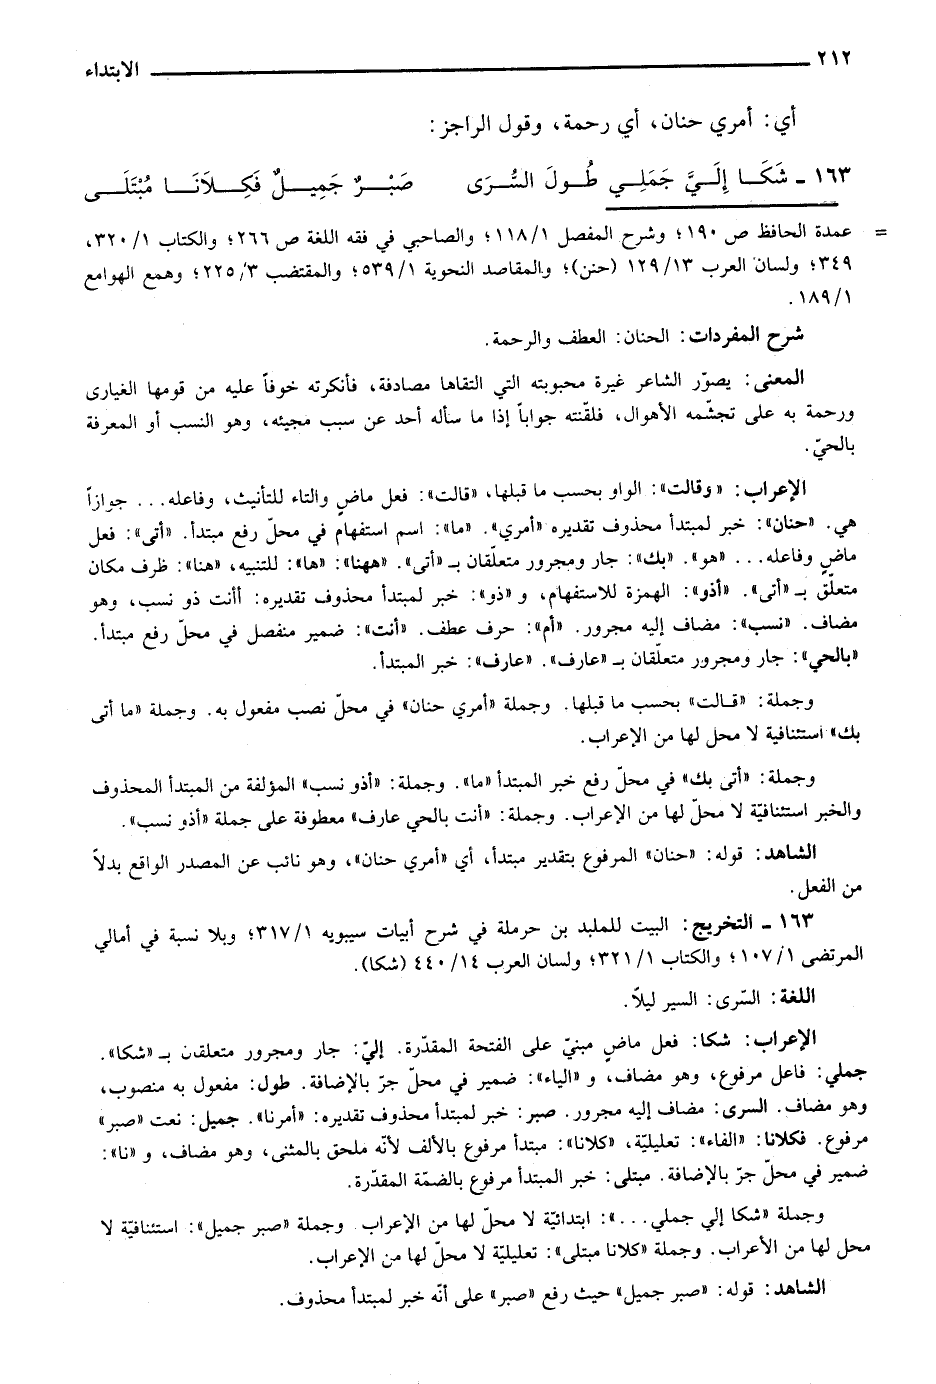 ٢١٢ الابتداء
أي: أمري حنان، أي رحمة، وقول الراجز:
١٦٣ ـ شَكَـا إِلَـيَّ جَمَلِـي طُولَ السُّرَى صَبْـرٌ جَمِيـلٌ فَكِـلاَنَـا مُبْتَلَـى
= عمدة الحافظ ص ١٩٠؛ وشرح المفصل ١١٨/١؛ والصاحبي في فقه اللغة ص ٢٦٦؛ والكتاب ٣٢٠/١،
٣٤٩؛ ولسان العرب ١٢٩/١٣ (حنن)؛ والمقاصد النحوية ٥٣٩/١؛ والمقتضب ٢٢٥/٣؛ وهمع الهوامع
١٨٩/١.
شرح المفردات: الحنان: العطف والرحمة.
المعنى: يصوّر الشاعر غيرة محبوبته التي التقاها مصادفة، فأنكرته خوفاً عليه من قومها الغيارى
ورحمة به على تجشّمه الأهوال، فلقّنته جواباً إذا ما سأله أحد عن سبب مجيئه، وهو النسب أو المعرفة
بالحيّ.
الإعراب: «وقالت»: الواو بحسب ما قبلها، «قالت»: فعل ماضٍ والتاء للتأنيث، وفاعله... جوازاً
هي. «حنان»: خبر لمبتدأ محذوف تقديره «أمري». «ما»: اسم استفهام في محلّ رفع مبتدأ. «أتى»: فعل
ماضٍ وفاعله... «هو». «بك»: جار ومجرور متعلّقان بـ «أتى». «ههنا»: «ها»: للتنبيه، «هنا»: ظرف مكان
متعلّق بـ «أتى». «أذو»: الهمزة للاستفهام، و «ذو»: خبر لمبتدأ محذوف تقديره: أأنت ذو نسب، وهو
مضاف. «نسب»: مضاف إليه مجرور. «أم»: حرف عطف. «أنت»: ضمير منفصل في محلّ رفع مبتدأ.
«بالحي»: جار ومجرور متعلّقان بـ «عارف». «عارف»: خبر المبتدأ.
وجملة: «قـالت» بحسب ما قبلها. وجملة «أمري حنان» في محلّ نصب مفعول به. وجملة «ما أتى
بك» استئنافية لا محل لها من الإعراب.
وجملة: «أتى بك» في محلّ رفع خبر المبتدأ «ما». وجملة: «أذو نسب» المؤلفة من المبتدأ المحذوف
والخبر استئنافيّة لا محلّ لها من الإعراب. وجملة: «أنت بالحي عارف» معطوفة على جملة «أذو نسب».
الشاهد: قوله: «حنان» المرفوع بتقدير مبتدأ، أي «أمري حنان»، وهو نائب عن المصدر الواقع بدلاً
من الفعل.
١٦٣ ـ التخريج: البيت للملبد بن حرملة في شرح أبيات سيبويه ٣١٧/١؛ وبلا نسبة في أمالي
المرتضى ١٠٧/١؛ والكتاب ٣٢١/١؛ ولسان العرب ٤٤٠/١٤ (شكا).
اللغة: السّرى: السير ليلاً.
الإعراب: شكا: فعل ماضٍ مبنيّ على الفتحة المقدّرة. إليّ: جار ومجرور متعلقان بـ «شكا».
جملي: فاعل مرفوع، وهو مضاف، و «الياء»: ضمير في محلّ جرّ بالإضافة. طول: مفعول به منصوب،
وهو مضاف. السرى: مضاف إليه مجرور. صبر: خبر لمبتدأ محذوف تقديره: «أمرنا». جميل: نعت «صبر»
مرفوع. فكلانا: «الفاء»: تعليليّة، «كلانا»: مبتدأ مرفوع بالألف لأنّه ملحق بالمثنى، وهو مضاف، و «نا»:
ضمير في محلّ جرّ بالإضافة. مبتلى: خبر المبتدأ مرفوع بالضمّة المقدّرة.
وجملة «شكا إلي جملي...»: ابتدائيّة لا محلّ لها من الإعراب. وجملة «صبر جميل»: استئنافيّة لا
محل لها من الأعراب. وجملة «كلانا مبتلى»: تعليليّة لا محلّ لها من الإعراب.
الشاهد: قوله: «صبر جميل» حيث رفع «صبر» على أنّه خبر لمبتدأ محذوف.